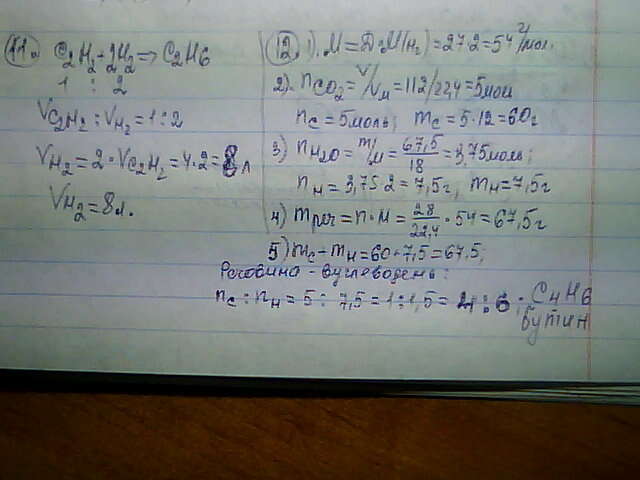 11.
C2H2+2H2=>C2H6
1 : 2
VC2H2 : VH2=1:2
VH2=2·VC2H2=4·2=8л
VH2=8л.
12. 1). M=D·M(H2)=27·2=54 г/мол.
2). nCO2=V/VM=112/22,4=5мол
nC=5моль; mC=5·12=60г
3) nH2O=m/M=67,5/18=3,75моль;
nH=3,75·2=7,5г, mH=7,5г
4) mреч=n·M=28/22,4·54=67,5г
5) mC+mH=60+7,5=67.5,
Речовина - вуглеводень:
nC:nH=5:7,5=1:1,5=4:6; C4H6
бутин